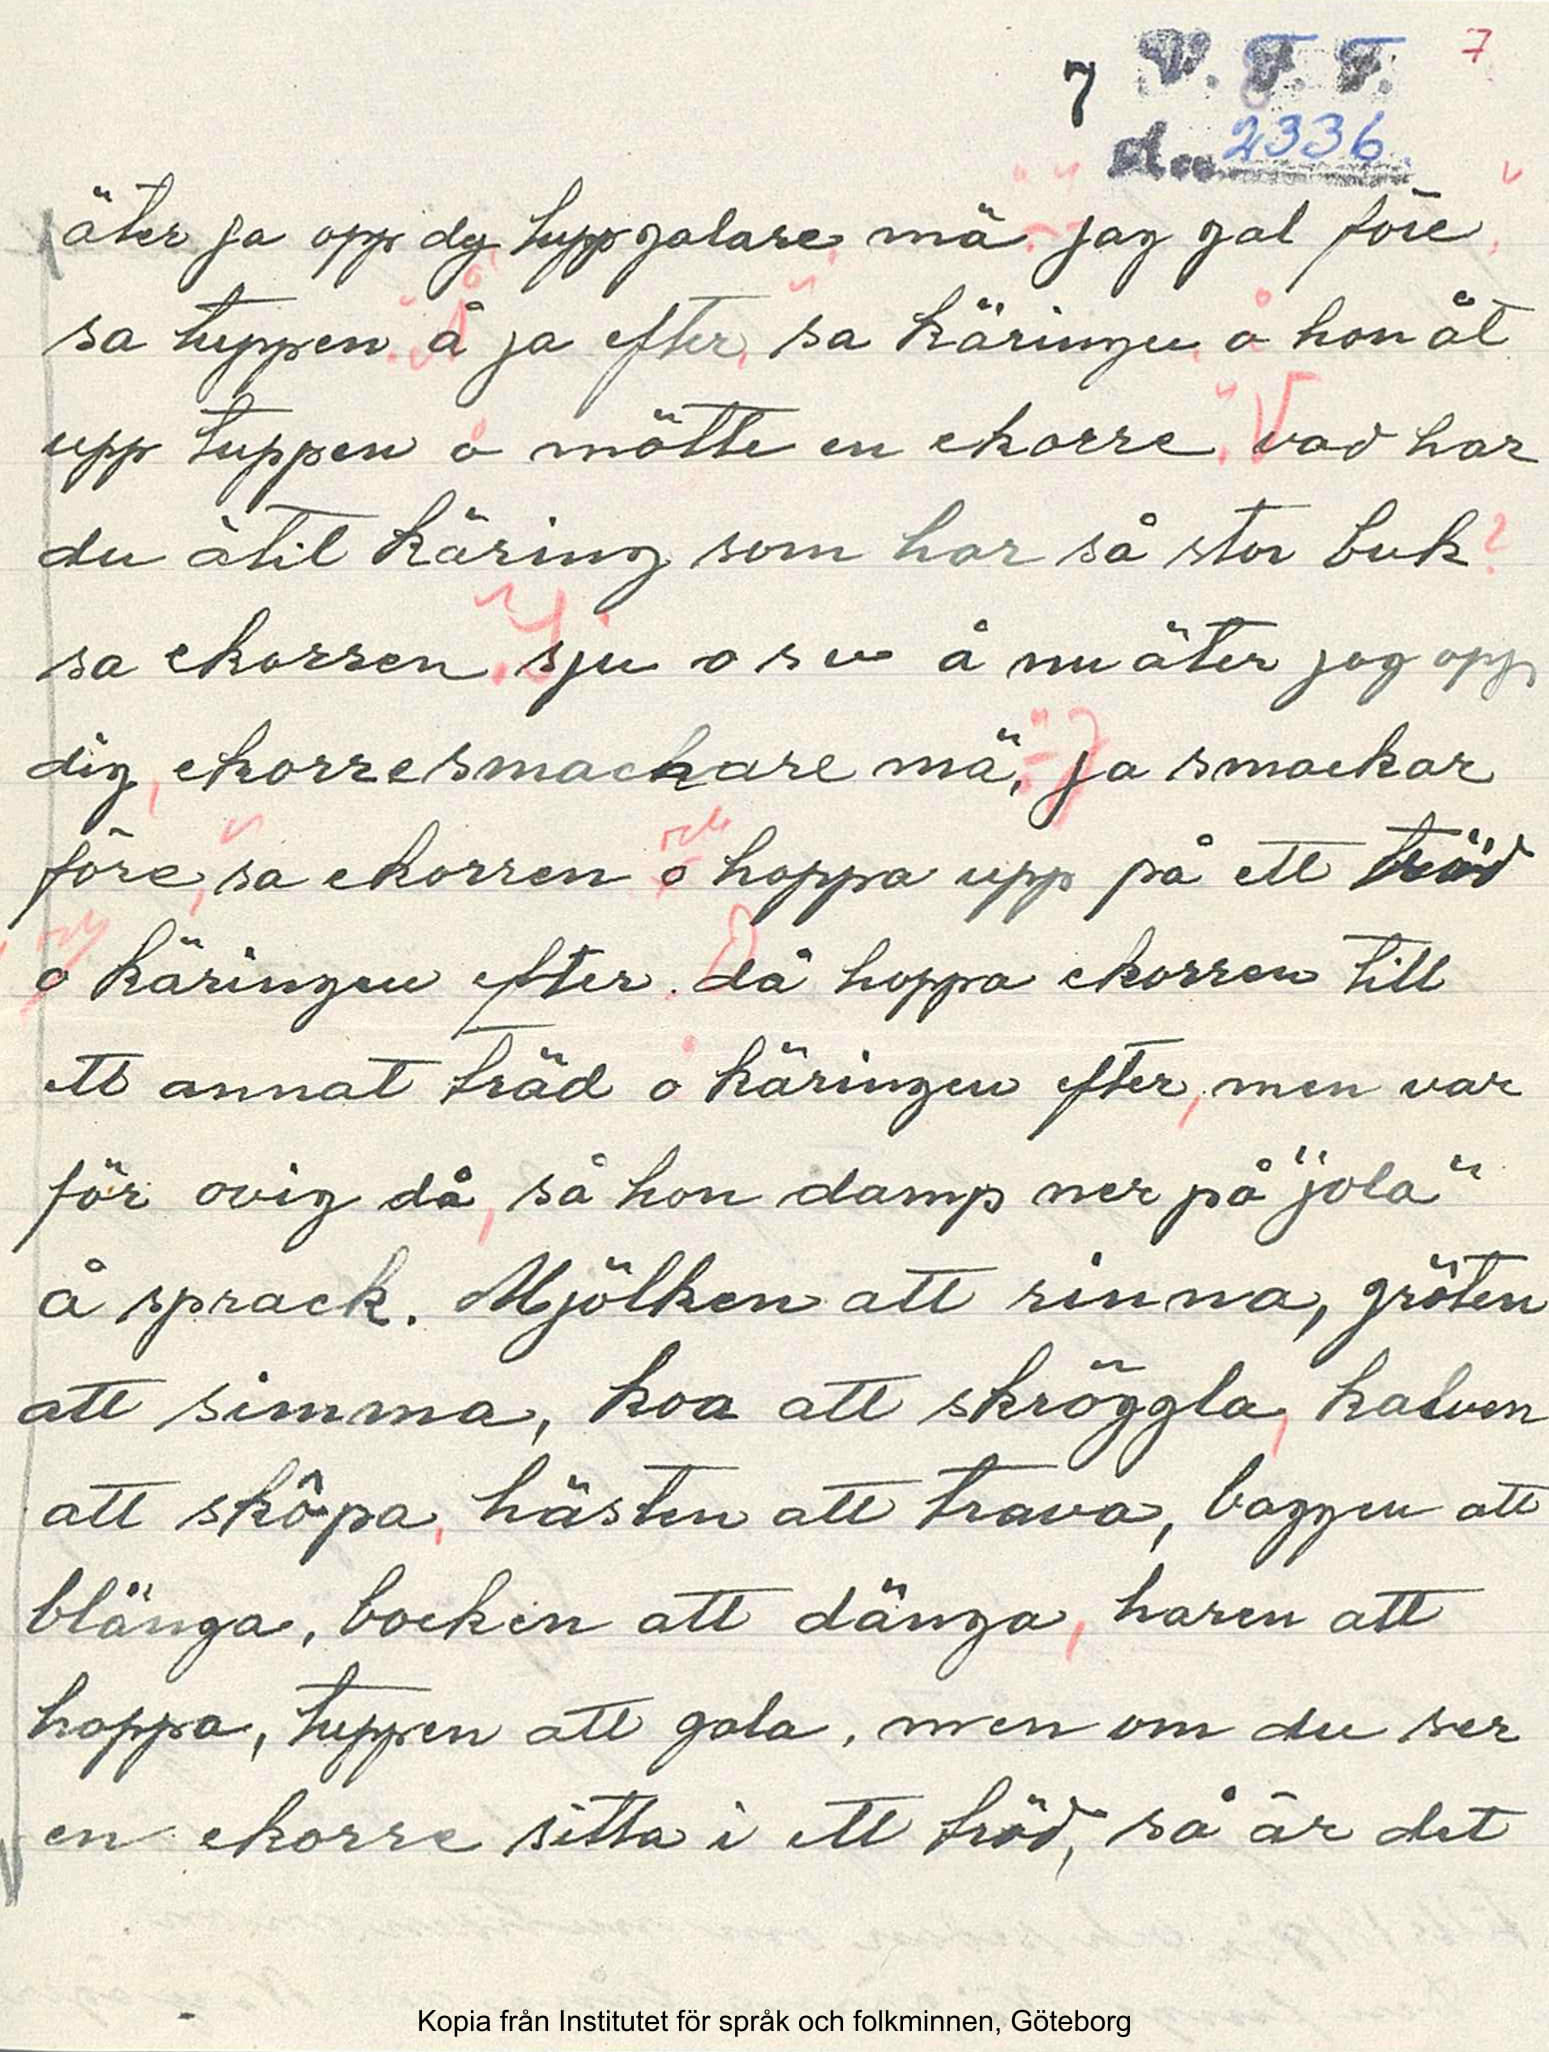 7 V. F. F. 7
d. 2336
äter ja opp dig, tuppgalare, mä." "jag gal före",
sa tuppen. "Å ja efter", sa käringen, å hon åt
upp tuppen å mötte en ekorre. "Vad har
du ätit käring som har så stor buk?"
sa ekorren. "Sju o s v å nu äter jag opp
dig, ekorresmackare mä." – "Ja smackar
före", sa ekorren och hoppa upp på ett träd
och käringen efter. Då hoppa ekorren till
ett annat träd å käringen efter, men var
för ovig då, så hon damp ner på "jola"
å sprack. Mjölken att rinna, gröten
att simma, koa att skröggla, kalven
att skôpa, hästen att trava, baggen att
blänga, bocken att dänga, haren att
hoppa, tuppen att gala, men om du ser
en ekorre sitta i ett träd, så är det
Kopia från Institutet för språk och folkminnen, Göteborg